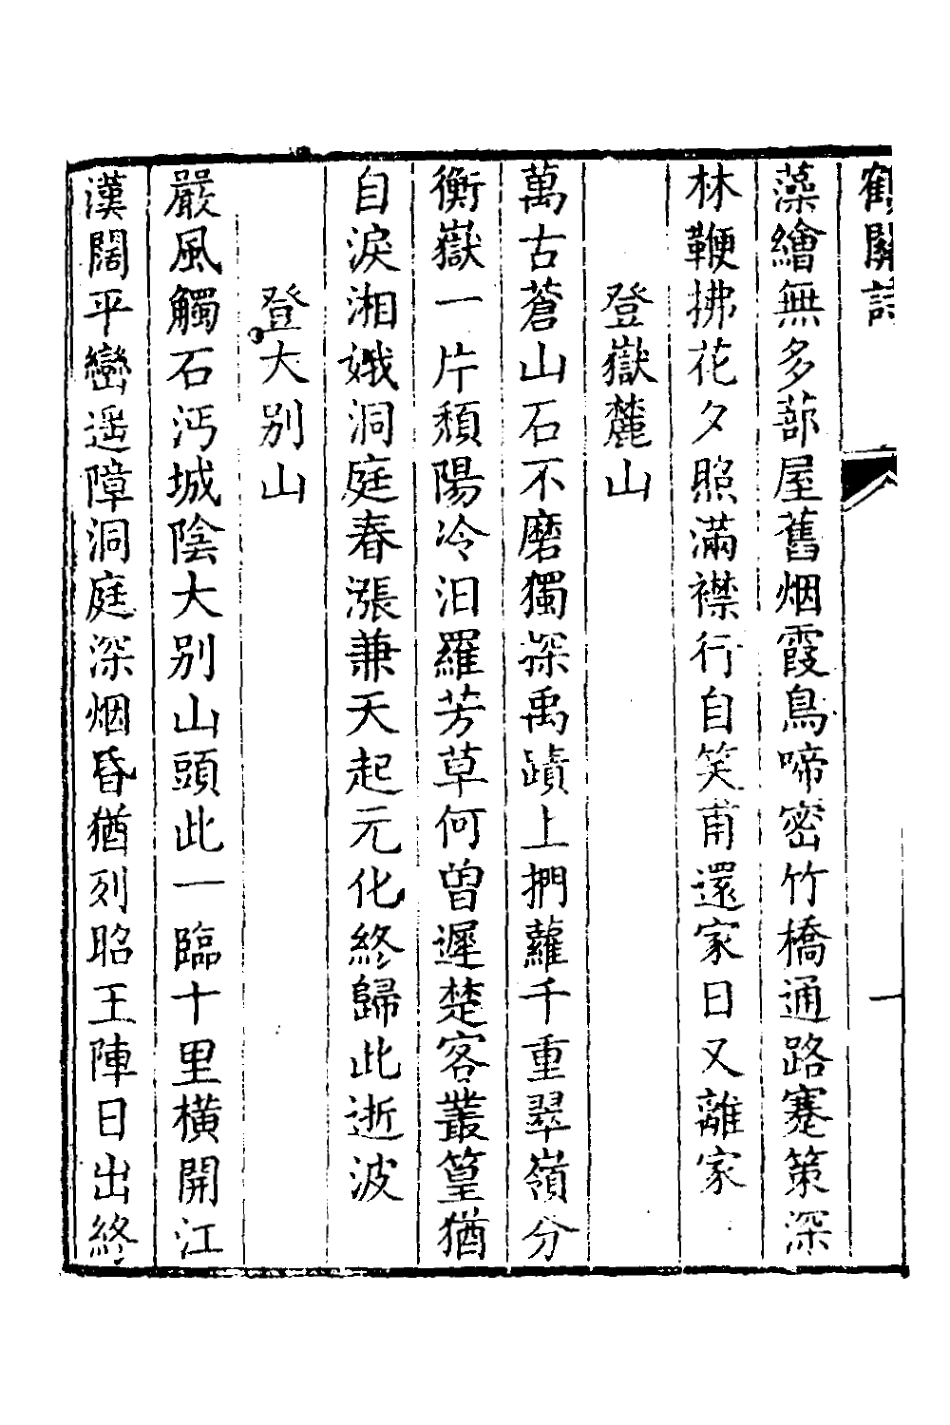 鶴關詩
一
藻繪無多蔀屋舊烟霞鳥啼密竹橋通路蹇策深
林鞭拂花夕照滿襟行自笑甫還家日又離家
登嶽麓山
萬古蒼山石不磨獨深禹蹟上捫蘿千重翠嶺分
衡嶽一片頹陽冷汨羅芳草何曽遲楚客叢篁猶
自淚湘娥洞庭春漲兼天起元化終歸此逝波
登大别山
嚴風觸石沔城陰大别山頭此一臨十里橫開江
漢闊平巒遥障洞庭深烟昏猶列昭王陣日出終